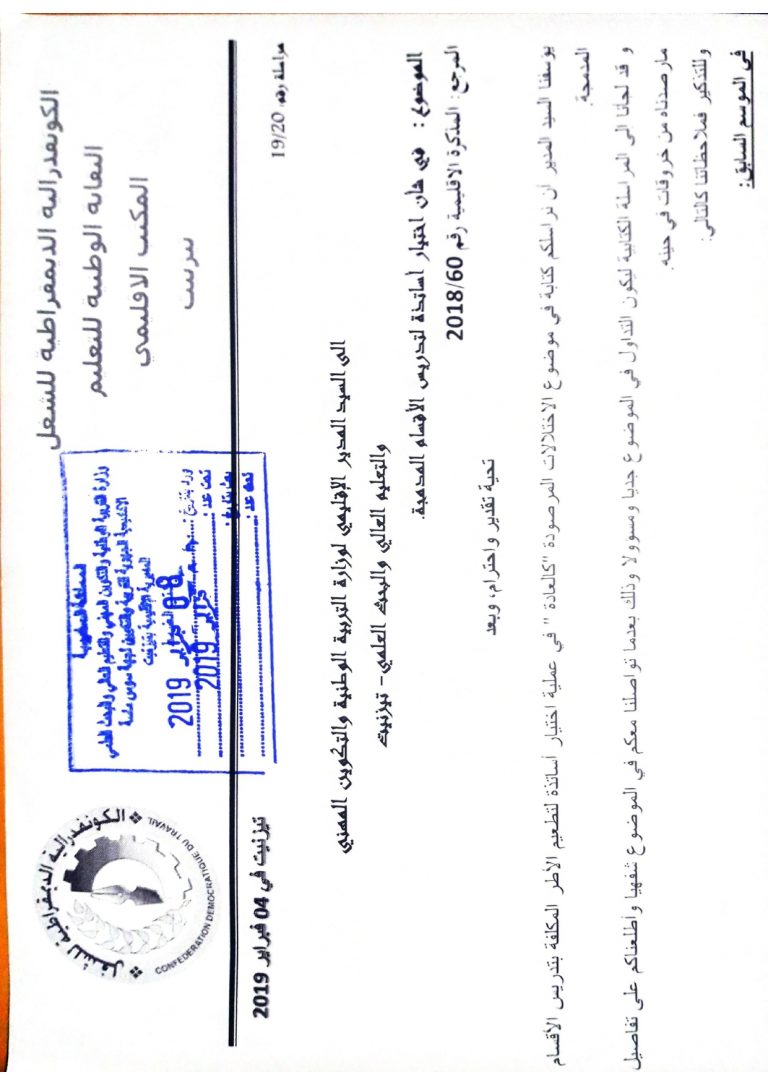 الكونفدرالية الديمقراطية للشغل
النقابة الوطنية للتعليم
المكتب الاقليمي
تيزنيت
الكونفدرالية الديمقراطية للشغل
CONFEDERATION DEMOCRATIQUE DU TRAVAIL
المملكة المغربية
وزارة التربية الوطنية والتكوين المهني والتعليم العالي والبحث العلمي
الأكاديمية الجهوية للتربية والتكوين لجهة سوس ماسة
المديرية الإقليمية بتيزنيت
08 فبراير 2019
ورد بتاريخ:
تحت عدد:
فبراير 2019
بعث بتاريخ:
تحت عدد:
مراسلة رقم: 19/20
تيزنيت في 04 فبراير 2019
الى السيد المدير الإقليمي لوزارة التربية الوطنية والتكوين المهني
والتعليم العالي والبحث العلمي- تيزنيت
الموضوع : في شأن اختيار أساتذة لتدريس الأقسام المدمجة.
المرجع: المذكرة الاقليمية رقم 2018/60
تحية تقدير واحترام، وبعد
يؤسفنا السيد المدير ان نراسلكم كتابة في موضوع الاختلالات المرصودة "كالعادة " في عملية اختيار أساتذة لتطعيم الأطر المكلفة بتدريس الأقسام
المدمجة.
و قد لجأنا الى المراسلة الكتابية ليكون التداول في الموضوع جديا ومسؤولا وذلك بعدما تواصلنا معكم في الموضوع شفهيا وأطلعناكم على تفاصيل
مارصدناه من خروقات في حينه.
وللتذكير فملاحظاتنا كالتالي:
في الموسم السابق: